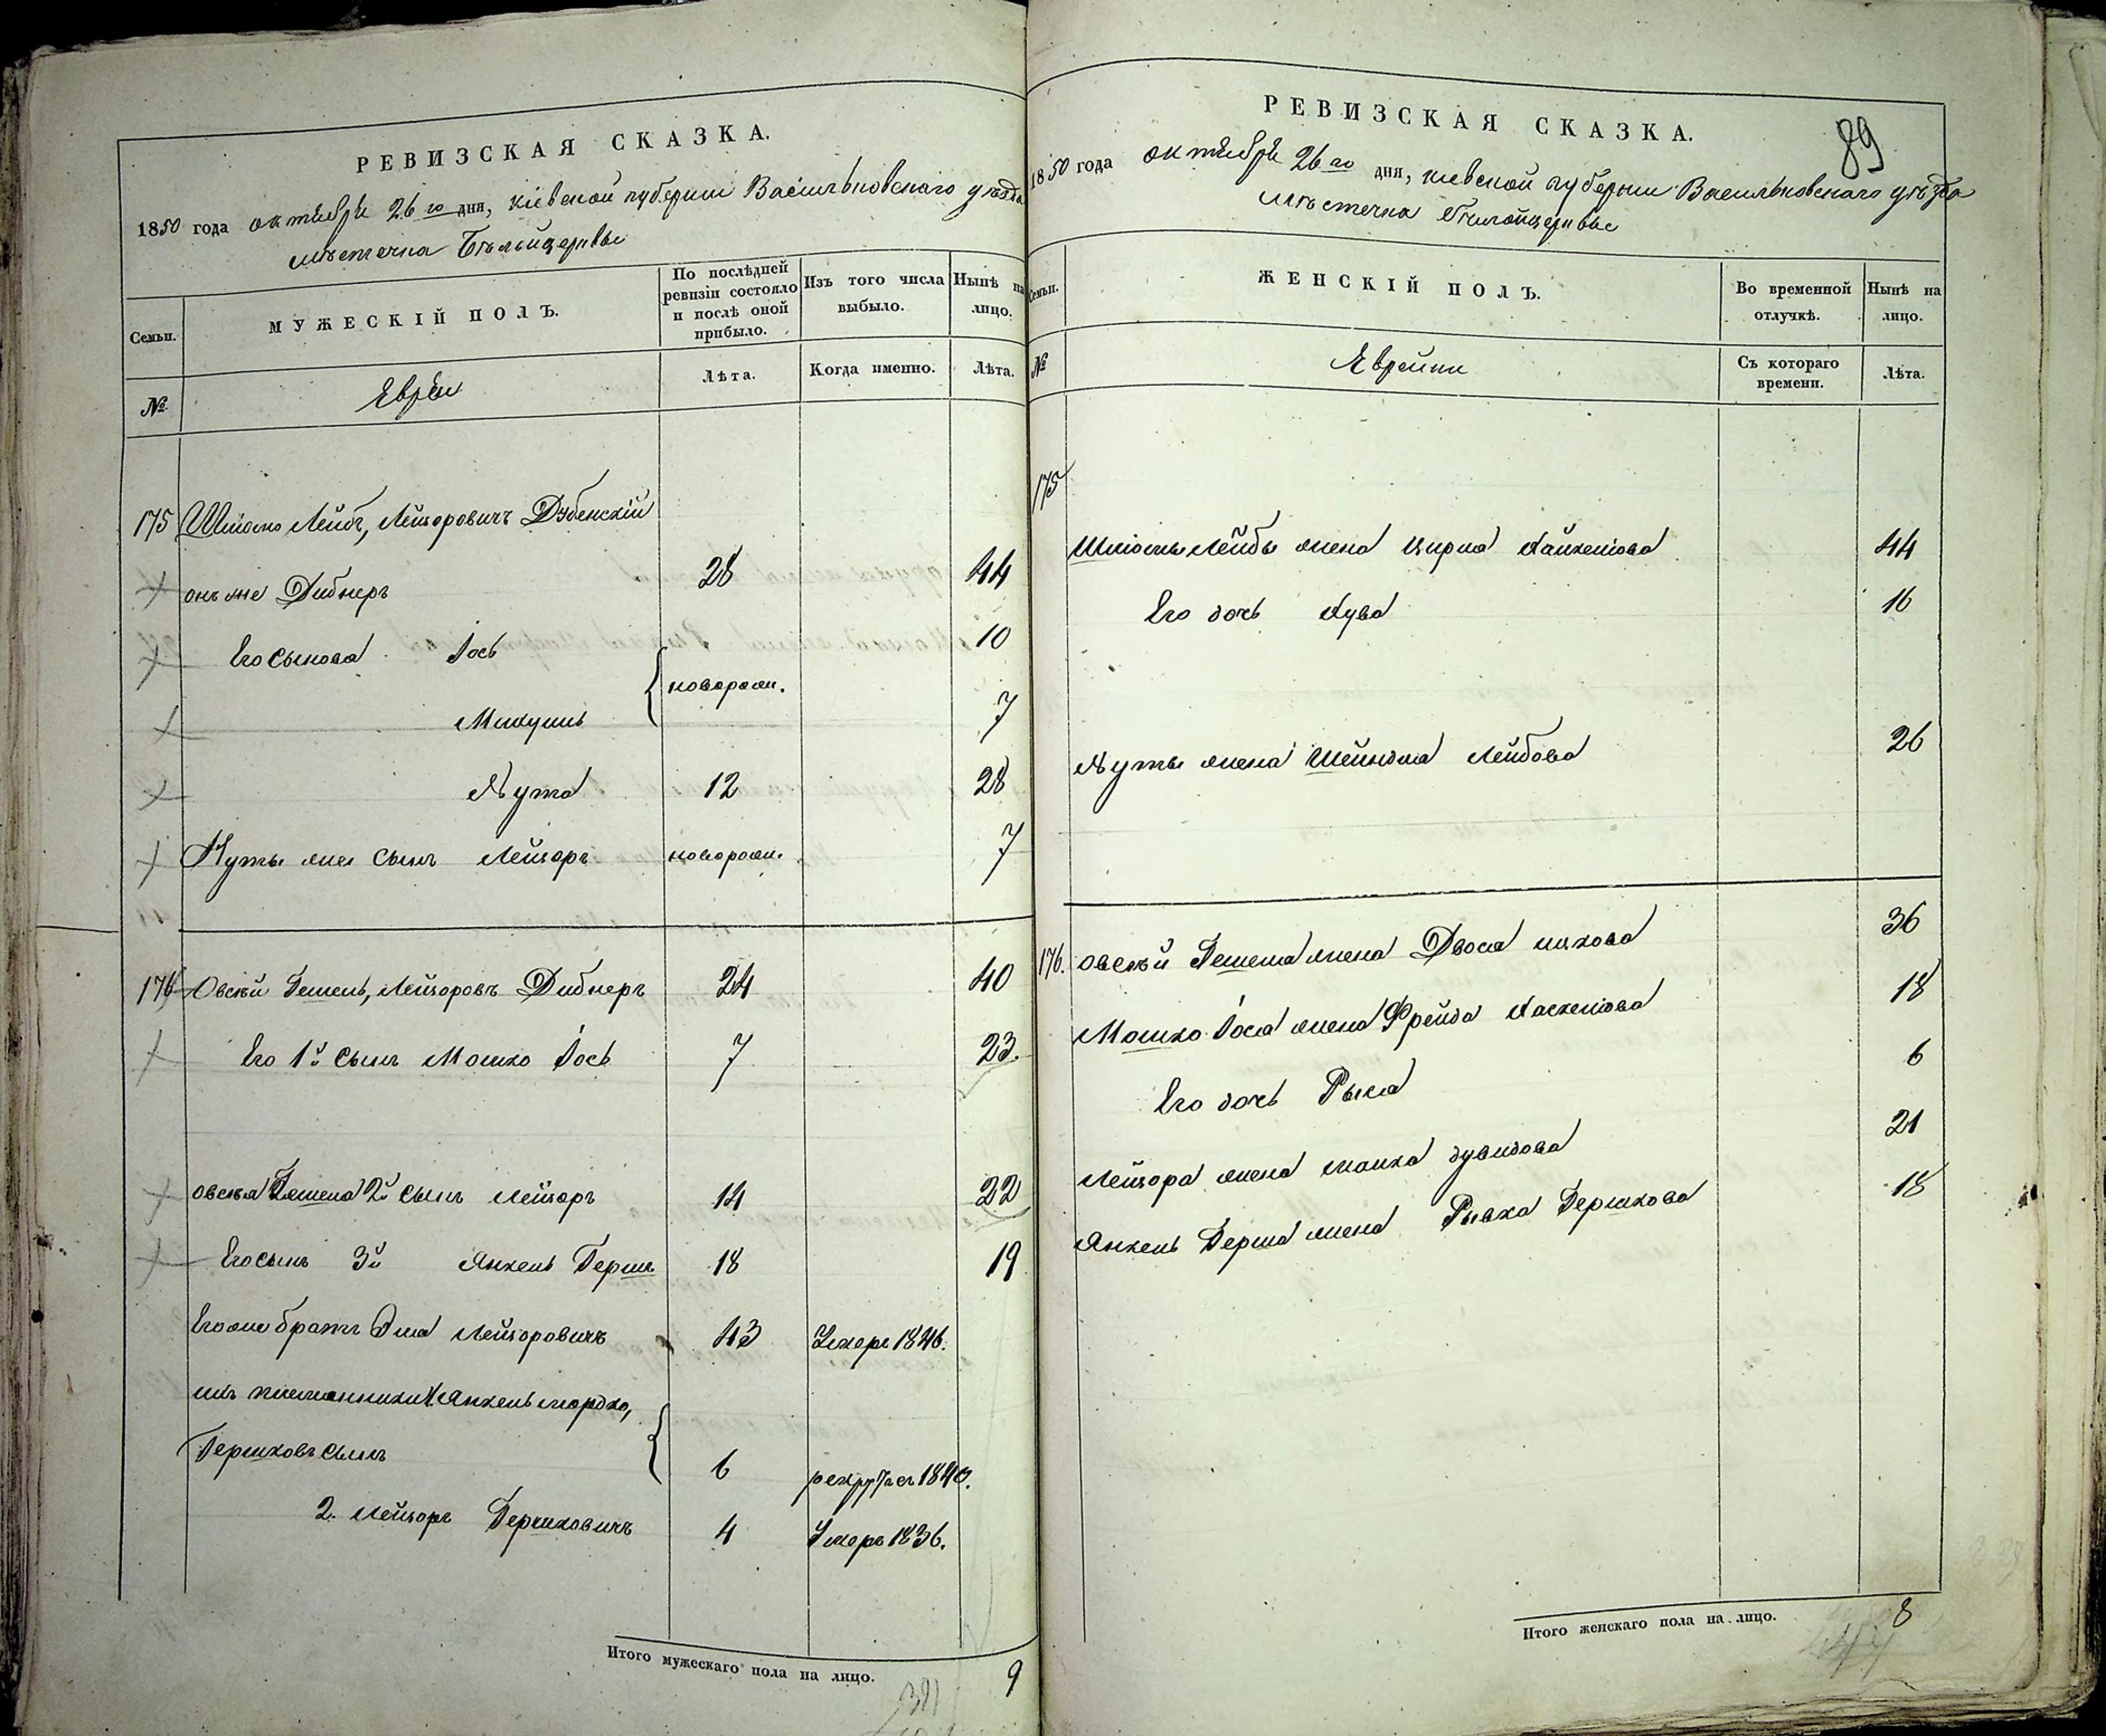 РЕВИЗСКАЯ СКАЗКА.
1850 года октября 26го дня, кіевской губерніи Васильковскаго уѣзда
мѣстечка Бѣлойцеркви
Семьи.
МУЖЕСКІЙ ПОЛЪ.
По послѣдней ревизіи состояло и послѣ оной прибыло.
Изъ того числа выбыло.
Нынѣ на лицо.
№
Евреи
Лѣта.
Когда именно.
Лѣта.
175 Шліома Лейбъ, Лейзоровичъ Дубенскій
онъ же Дибнеръ 28 44
Его сынова Іось 10
новорожд.
7
Нута 12 28
Нуты же сынъ Лейзоръ новорожд. 7
176 Овсѣй Гешель, Лейзоровъ Дибнеръ 24 40
Его 1й сынъ Мошко Іось 7 23.
овсѣя Гешеля 2й сынъ Лейзоръ 14 22
Его сынъ 3й Янкель Гершъ 18 19
Его же братъ Лейзоровичъ 43 Умеръ 1846.
ихъ племянники 1. Янкель мордко,
Гершковъ сынъ 6 рекрутъ съ 1840.
2. Лейзоръ Гершковичъ 4 Умеръ 1836.
Итого мужескаго пола на лицо. 9
89
РЕВИЗСКАЯ СКАЗКА.
1850 года октября 26го дня, кіевской губерніи Васильковскаго уѣзда
мѣстечка Бѣлойцеркви
Семьи.
ЖЕНСКІЙ ПОЛЪ.
Во временной отлучкѣ.
Нынѣ на лицо.
№
Еврейки
Съ котораго времени.
Лѣта.
175
Шліомы Лейбы жена Цирля 44
Его дочь Хува 16
Нуты жена Шейндля Лейбова 26
176. овсѣй Гешеля жена Двося ицкова 36
Мошко Іося жена Фрейда 18
Его дочь Рыся 6
Лейзора жена дувидова 21
Янкель Герша жена Рывка Гершкова 18
Итого женскаго пола на лицо. 8